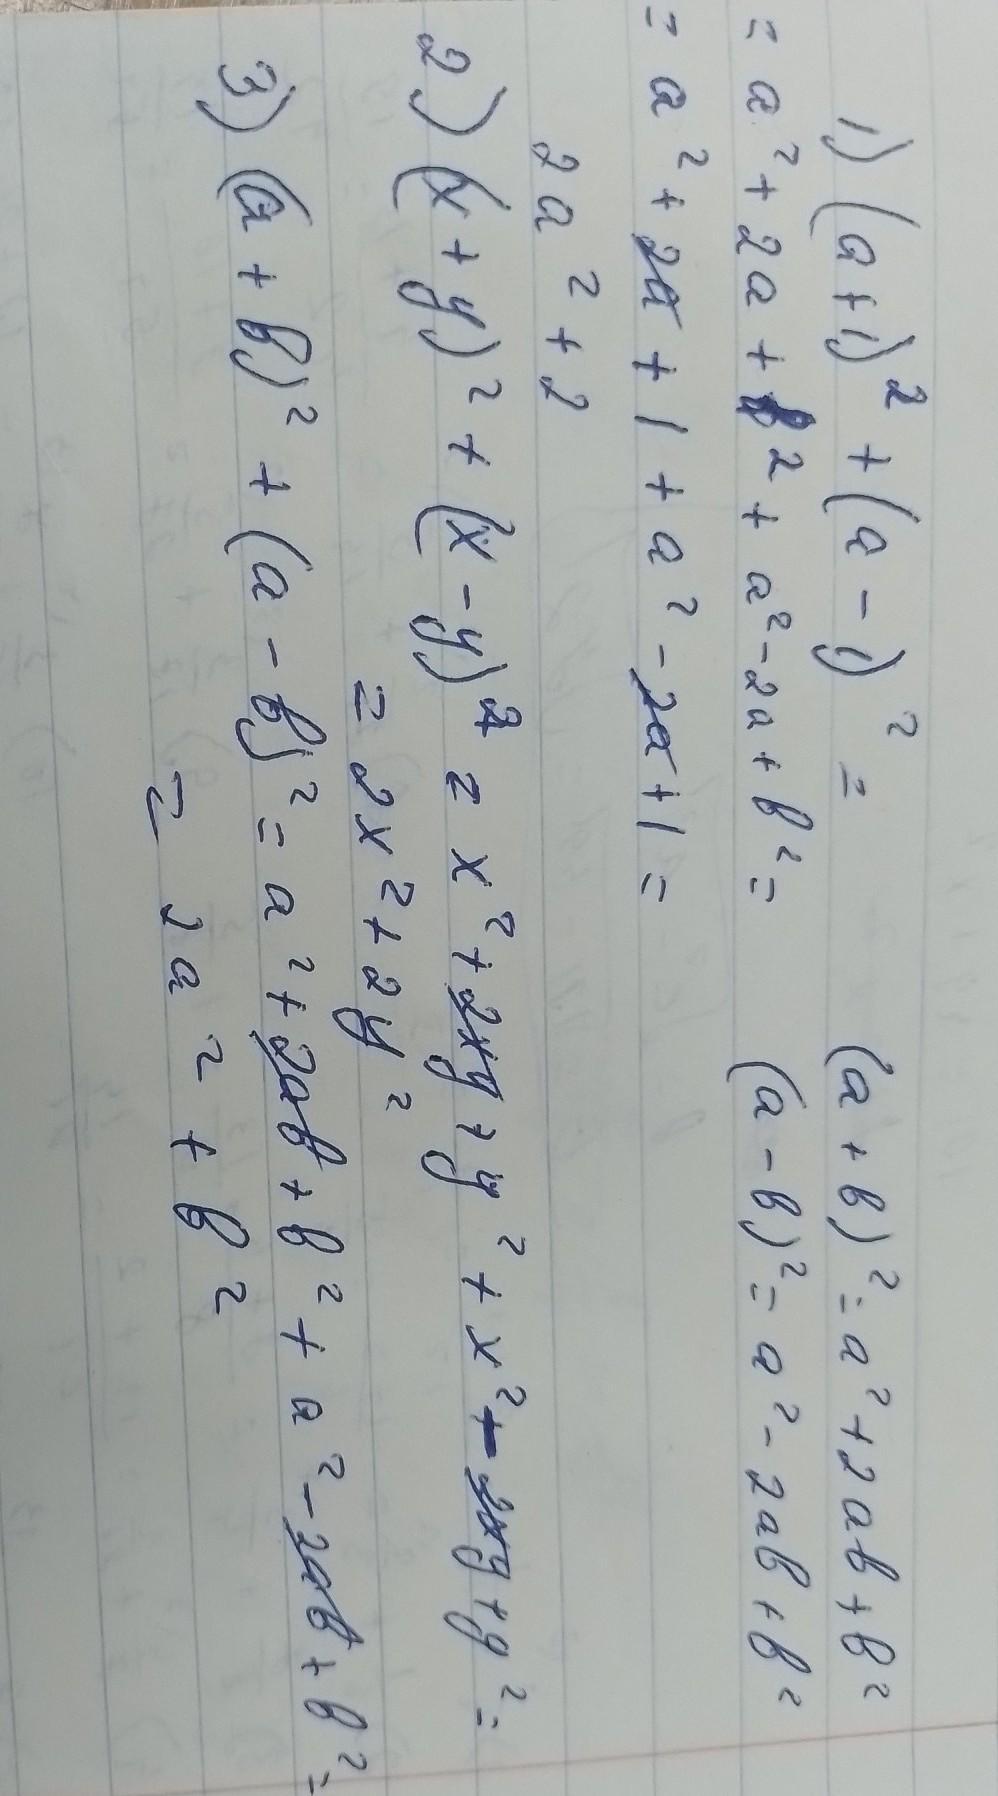 1) (a+1)² + (a-1)² =
(a+b)² = a² + 2ab + b²
= a² + 2a + b² + a² - 2a + b² =
(a-b)² = a² - 2ab + b²
= a² + 2a + 1 + a² - 2a + 1 =
2a² + 2
2) (x+y)² + (x-y)² = x² + 2xy + y² + x² - 2xy + y² =
= 2x² + 2y²
3) (a+b)² + (a-b)² = a² + 2ab + b² + a² - 2ab + b² =
= 2a² + b²